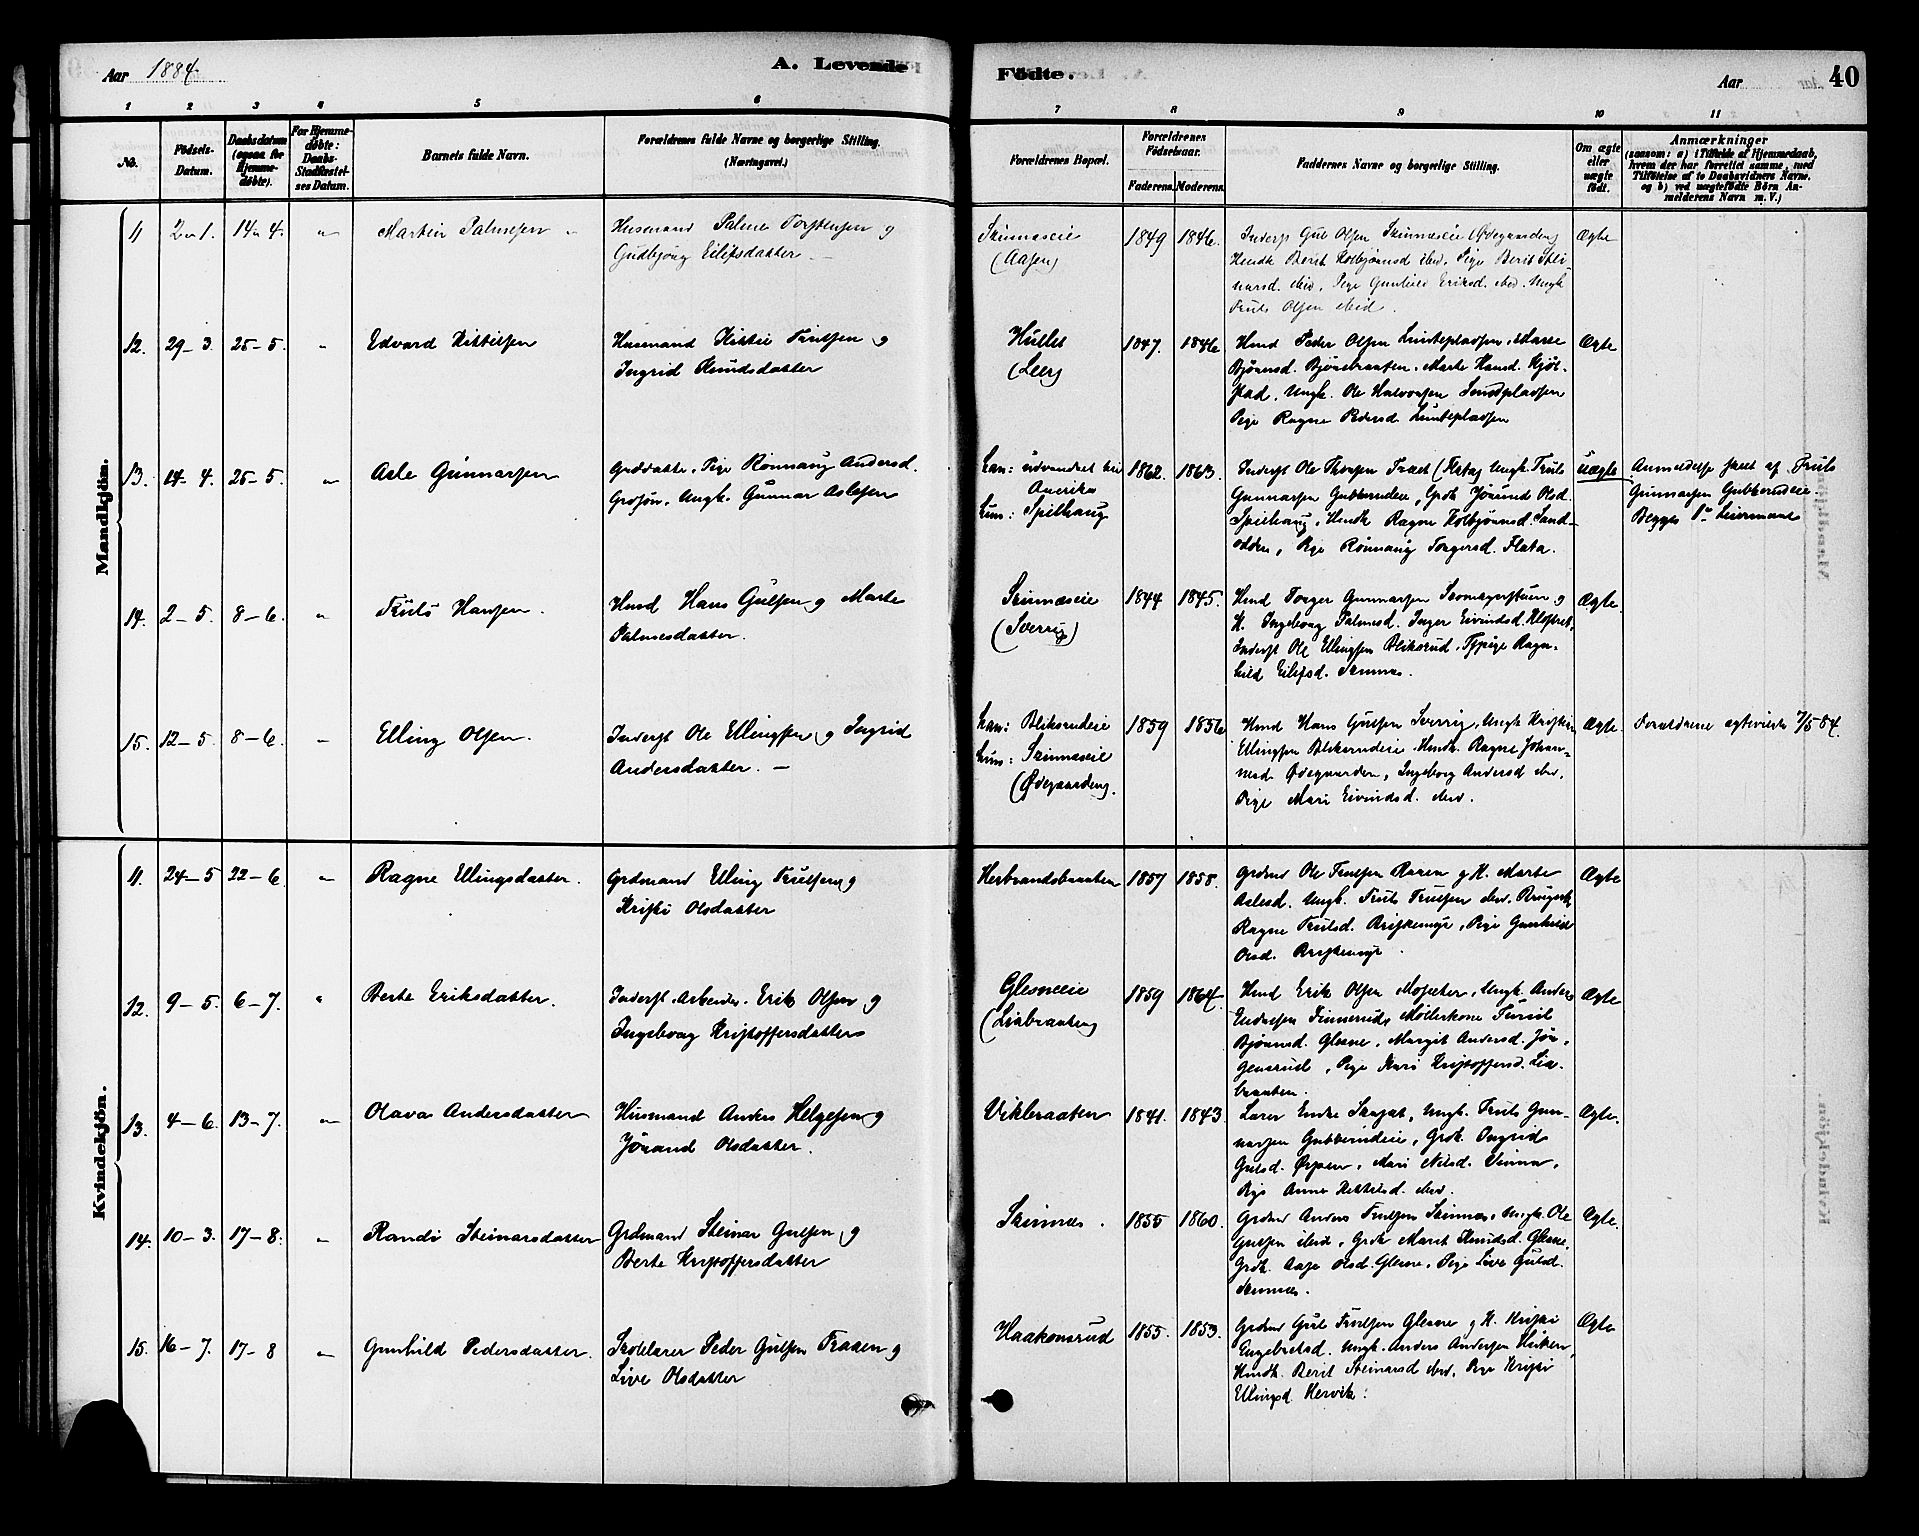 Aar 1884.
A. Levende
Født​e.
Aar
40
1
2
3
4
5
6
7
8
9
10
11
No.
Fødsels-
Datum.
Daabsdatum
(ogsaa for
Hjemme-
døbte).
For Hjemme-
døbte:
Daabs-
Stadfæstel-
ses Datum.
Barnets fulde Navn.
Forældrenes fulde Navne og borgerlige Stilling.
(Næringsvei.)
Forældrenes Bopæl.
Forældrenes
Fødselsaar.
Faderens.
Moderens.
Faddernes Navne og borgerlige Stilling.
Om ægte
eller
uægte
født.
Anmærkninger
(saasom: a) i Tilfælde af Hjemmedaab,
hvem der har forrettet samme, med
Tilføielse af to Daabsvidners Navne,
og b) ved uægtefødte Børn An-
melderens Navn m. V.)
Mandkjøn.
11 2-1. 14-4. " Martin Palmesen
Husmand Palme Torstensen og
Gudbjørg Eilifsdatter.
Skinnæseie
(Aasen)
1849 1846.
Inderst Gul Olsen Skinnæseie (Ødegaarden)
Hmdk Berit Kolbjørnsd ibid. Pige Berit Stei
narsd. ibid, Pige Gunhild Eriksd. ibid. Ungk
Truls Olsen ibid.
Ægte
12. 29-3. 25-5. " Edvard Kittilsen
Husmand Kittil Trulsen og
Ingrid Knudsdatter
(Leer)
1847. 1846
Hmd Peder Olsen Lindtepladsen, Marte
Bjørnsd. Bjørnebraaten, Marte Hansd. Kjøl-
stad, Ungk. Ole Halvorsen
Pige Ragne Pedersd.
Ægte
13. 14-4. 25-5. " Asle Gunnarsen
Grddatter, Pige Rønnaug Andersd.
Grdsøn, Ungk. Gunnar Aslesen
han: udvandret til
Amerika
hun: Spilhaug
1862. 1863.
Inderst Ole Thorsen Træet Ungk. Truls
Gunnarsen Gubberudeie, Grdk Jørund Olsd.
Spilhaug, Hmdk Ragne Kolbjørnsd. Sand-
odden, Pige Rønnaug Torgersd. Flata.
uægte
Anmeldelse skeet af Truls
Gunnarsen Gubberudeie.
Begges 1ste Leiermaal
14. 2-5. 8-6. " Truls Hansen.
Hmd Hans Gulsen og Marte
Palmesdatter.
Skinnæseie
(Sverrig)
1844 1845.
Hmd Torger Gunnarsen og
K. Ingeborg Palmesd. Inger Eivindsd.
Inderst Ole Ellingsen Bliksrud, Tjpige Ragn-
hild Eilifsd. Skinnes.
Ægte.
15. 12-5. 8-6. Elling Olsen.
Inderst Ole Ellingsen og Ingrid
Andersdatter.
han: Bliksrudeie
hun: Skinnæseie
(Ødegaarden).
1859 1856
Hmd Hans Gulsen Sverrig, Ungk Kristian
Ellingsen Bliksrudeie, Hmdk. Ragne Johan-
nesd Ødegaarden, Ingeborg Andersd ibid,
Pige Mari Eivindsd. ibid.
Ægte.
Forældrene ægteviede 7/5 84.
Kvindekjøn.
11. 24-5 22-6 " Ragne Ellingsdatter.
Grdmand Elling Trulsen og
Kristi Olsdatter
Herbrandsbraaten
1857 1858.
Grdmd Ole Trulsen Raaen og K. Marte
Aslesd. Ungk. Truls Trulsen ibid.
Ragne Trulsd. Briskemyr, Pige Gunhild
Olsd. Briskemyr.
Ægte
12. 9-5. 6-7. " Berte Eriksdatter.
Inderst, Arbeider. Erik Olsen og
Ingeborg Kristoffersdatter
Glesneeie
(Liabraaten)
1859 1864.
Hmd Erik Olsen Ungk. Anders
Endresen Finnerud, Møllerkone Turid
Bjørnsd. Glesne, Margit Andersd. Jør-
gensrud, Pige Kari Kristoffersd. Lia-
braaten.
Ægte
13. 4-6. 13-7. " Olava Andersdatter
Husmand Anders Helgesen og
Jørand Olsdatter.
Vikbraaten
1841. 1843.
Lærer Endre Ungk. Truls Gun-
narsen Gubberudeie, Grdk. Ingrid
Gulsd. Ørpen, Mari Nilsd.
Pige Anne Kittilsd. ibid.
Ægte.
14. 10-3. 17-8. " Randi Steinarsdatter
Grdmand Steinar Gulsen og
Berte Kristoffersdatter
Skinnes.
1855 1860.
Grdmd Anders Trulsen Skinnes, Ungk. Ole
Gulsen ibid, Grdk Marit Knudsd. Glesne,
Grdk. Aase Olsd. Glesne, Pige Live Gulsd.
Skinnes.
Ægte.
15. 16-7. 17-8 " Gunhild Pedersdatter.
Skolelærer Peder Gulsen Traaen og
Live Olsdatter
Haakonsrud
1855. 1853.
Grdmd Gul Trulsen Glesne og K. Kristi
Engebretsd. Ungk. Anders Andersen
Hmdk. Berit Steinarsd ibid, Pige Kristi
Ellingsd. Hervik.
Ægte